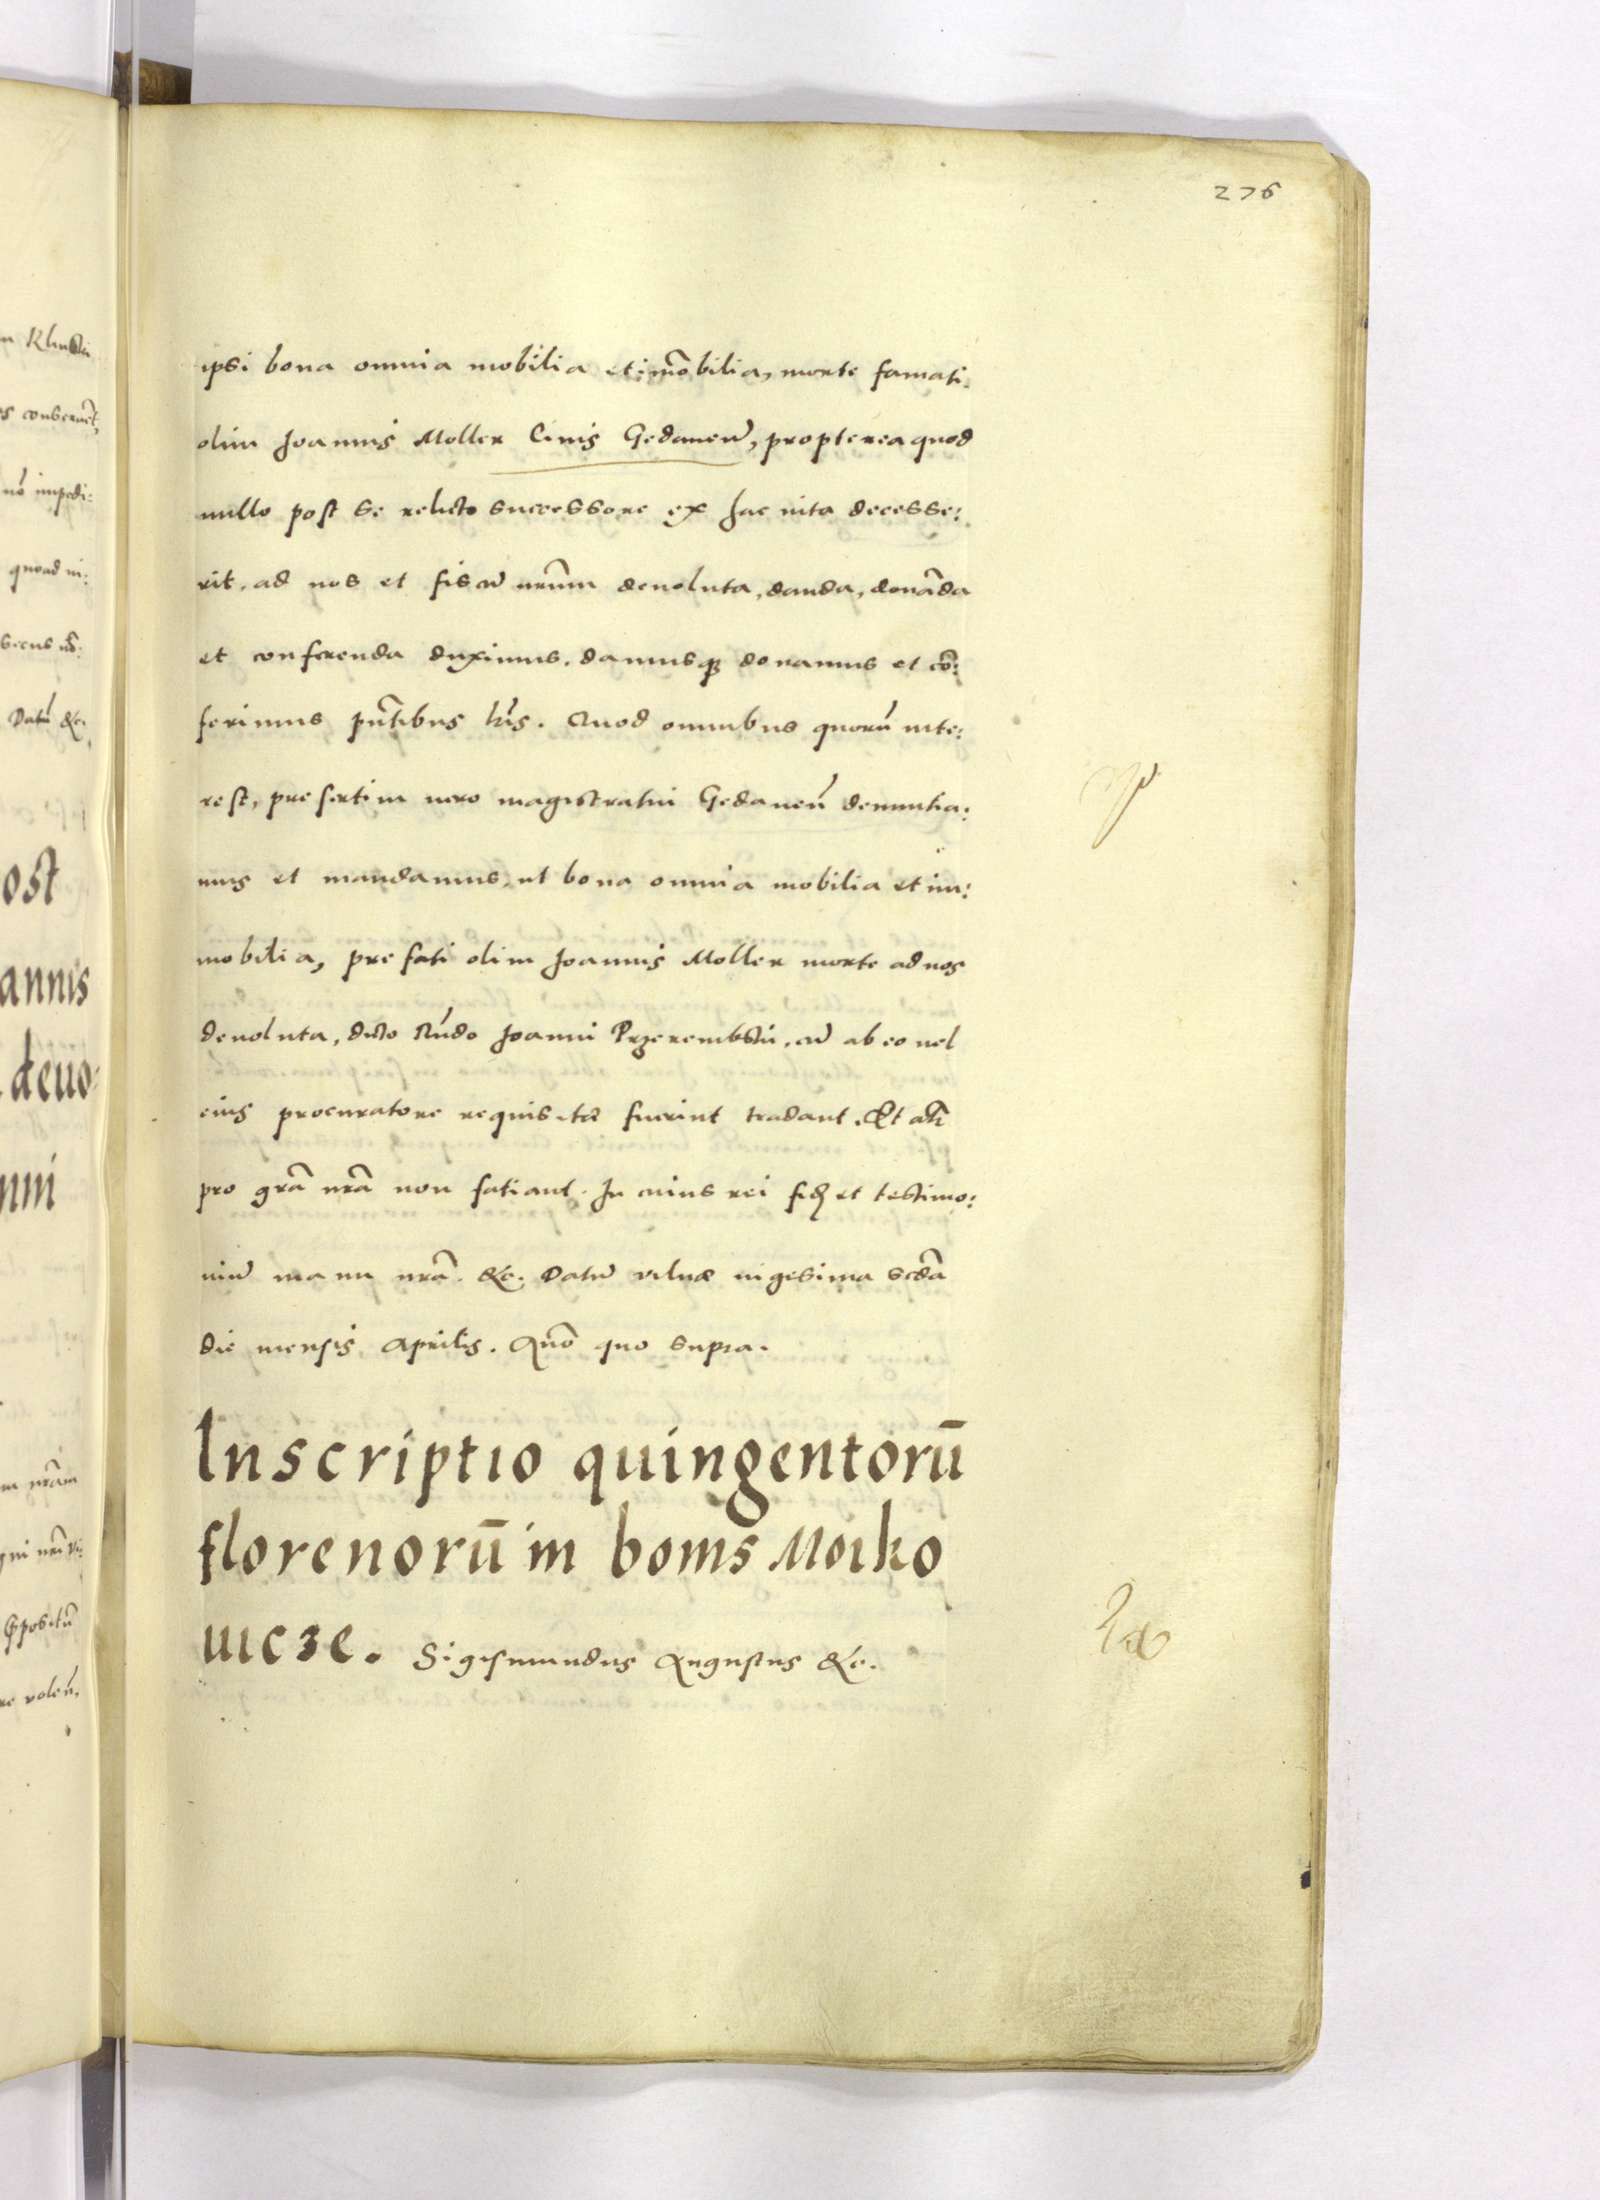 276
ipsi bona omnia mobilia et im̃obilia, morte famati
olim Joannis Moller Ciuis Gedaneñ, propterea quod
nullo post se relicto successore ex hac uita decesse:
rit, ad nos et fiscũ nrũm deuoluta, danda, donãda
et conferenda duximus, damusq̃ donamus et cõ:
ferimus pñtibus lrĩs. Quod omnibus quorũ inte:
rest, presertim uero magistratui Gedaneñ denuntia:
mus et mandamus, ut bona omnia mobilia et im:
mobilia, prefati olim Joannis Moller morte ad nos
deuoluta, dicto Rñdo Joanni Przerembski, cũ ab eo uel
eius procuratore requisita fuerint tradant. Et alr̃
pro grã nrã non fatiant. In cuius rei fidẽ et testimo:
niũ manu nrã. &c. Datũ Vilnæ uigesima scdã
die mensis Aprilis. Año quo supra.
Inscriptio quingentorū
florenorū in bonis Moiko
uicze. Sigismundus Augustus &c.
ost
annis
deuo:
nni